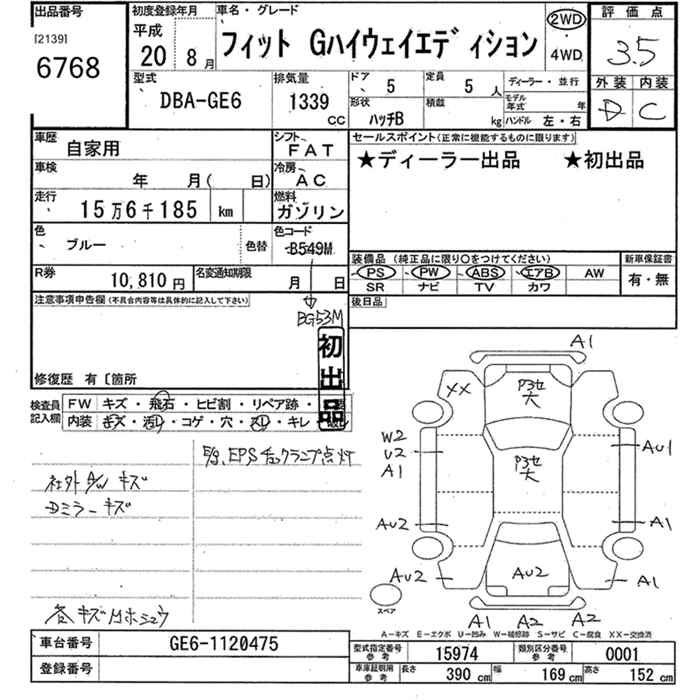 出品番号
[2139]
6768
初度登録年月
平成
20年
8月
車名・グレード
フィット Gハイウェイエディション
2WD
4WD
評価点
3.5
外装 内装
D C
型式
DBA-GE6
排気量
1339
CC
ドア 5
定員 5人
形状 ハッチB
積載 kg
ディーラー・並行
モデル年式 年
ハンドル 左・右
車歴
自家用
シフト
FAT
車検
年 月( 日)
冷房
AC
走行
15万6千185 km
燃料
ガソリン
色
ブルー
色替
色コード
B549M
R券
10,810円
名変通知期限
月 日
BG53M
セールスポイント(正常に機能するものに限ります)
★ディーラー出品 ★初出品
装備品 (純正品に限り○をつけてください)
PS PW ABS エアB AW
SR ナビ TV カワ
新車保証書
有・無
後日品
注意事項申告欄(不具合内容等は具体的に記入して下さい)
修復歴 有〔箇所
初出品
検査員記入欄
FW キズ・飛石・ヒビ割・リペア跡・
内装 キズ・汚レ・コゲ・穴・スレ・キレ・
E/g, EPSチェックランプ点灯
社外A/W キズ
Dミラーキズ
各キズ小ホシュウ
A1
XX
P3セ
大
W2
U2
A1
P3セ
大
AU1
AU2
A1
AU2
AU2
A1
スペア
A1 A2 A2
A―キズ E―エクボ U―凹み W―補修跡 S―サビ C―腐食 XX―交換済
車台番号
GE6-1120475
登録番号
型式指定番号
参考
15974
類別区分番号
参考
0001
車庫証明用
参考
長さ 390 cm
幅 169 cm
高さ 152 cm